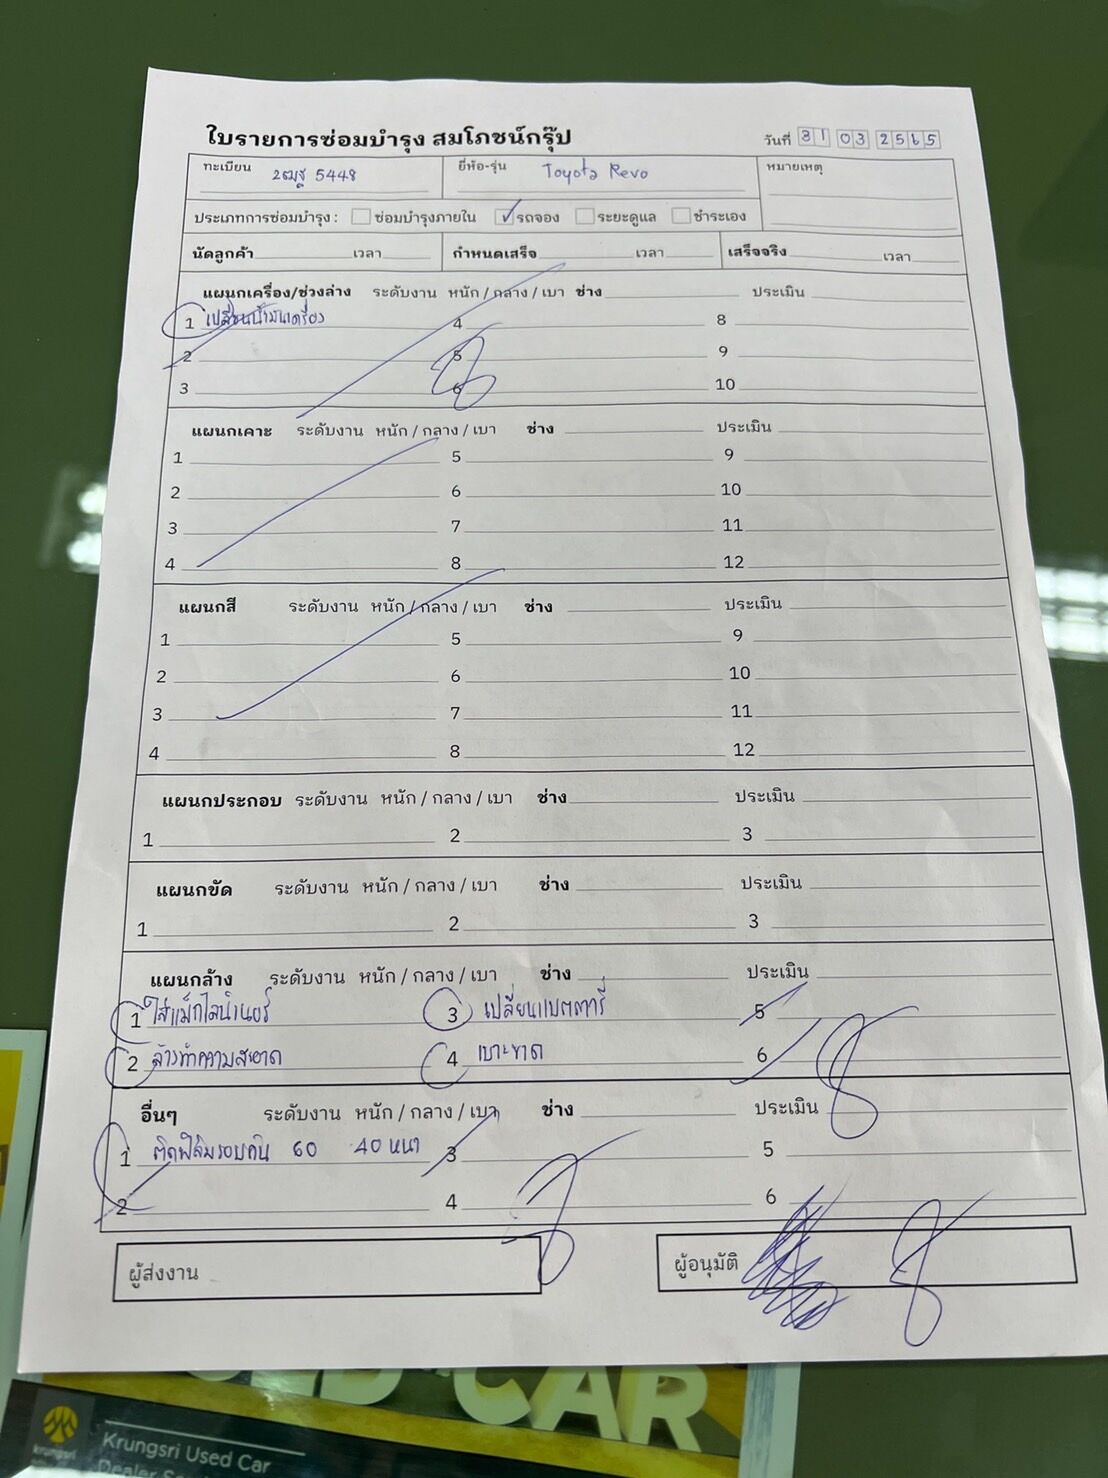 ใบรายการซ่อมบำรุง สมโภชน์กรุ๊ป
วันที่ 31 03 2565
ทะเบียน 2ฒฐ 5448 ยี่ห้อ-รุ่น Toyota Revo หมายเหตุ
ประเภทการซ่อมบำรุง : ซ่อมบำรุงภายใน ✓ รถจอง ระยะดูแล ชำระเอง
นัดลูกค้า เวลา กำหนดเสร็จ เวลา เสร็จจริง เวลา
แผนกเครื่อง/ช่วงล่าง ระดับงาน หนัก / กลาง / เบา ช่าง ประเมิน
1 เปลี่ยนน้ำมันเครื่อง 4 8
2 5 9
3 6 10
แผนกเคาะ ระดับงาน หนัก / กลาง / เบา ช่าง ประเมิน
1 5 9
2 6 10
3 7 11
4 8 12
แผนกสี ระดับงาน หนัก / กลาง / เบา ช่าง ประเมิน
1 5 9
2 6 10
3 7 11
4 8 12
แผนกประกอบ ระดับงาน หนัก / กลาง / เบา ช่าง ประเมิน
1 2 3
แผนกขัด ระดับงาน หนัก / กลาง / เบา ช่าง ประเมิน
1 2 3
แผนกล้าง ระดับงาน หนัก / กลาง / เบา ช่าง ประเมิน
1 ใส่แม็กไลน์เนอร์ 3 เปลี่ยนแบตตารี่ 5
2 ล้างทำความสะอาด 4 เบาะขาด 6
อื่นๆ ระดับงาน หนัก / กลาง / เบา ช่าง ประเมิน
1 ติดฟิล์มรอบคัน 60 40 หน้า 3 5
2 4 6
ผู้ส่งงาน ผู้อนุมัติ
CAR
krungsri
Krungsri Used Car